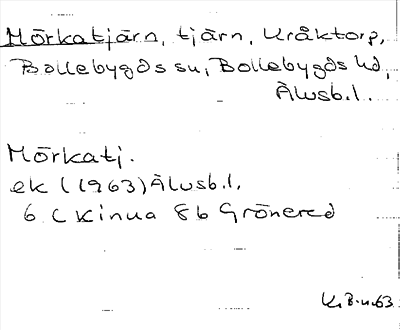 Mörkatjärn, tjärn, Kråktorp,
Bollebygds sn, Bollebygds hd,
Älvsb. l.
Mörkatj.
ek (1963) Älvsb. l.
6 C Kinna 8 b Grönered
K.B-n 63